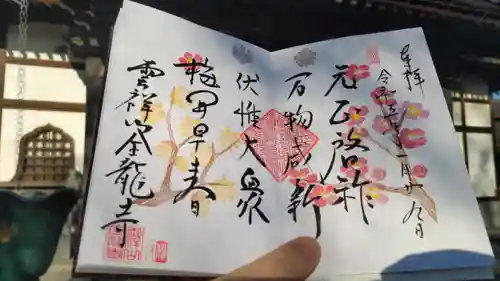 奉拝
令和三年一月廿九日
元正啓祚
万物咸新
伏惟大衆
梅開早春
雲祥山金龍寺